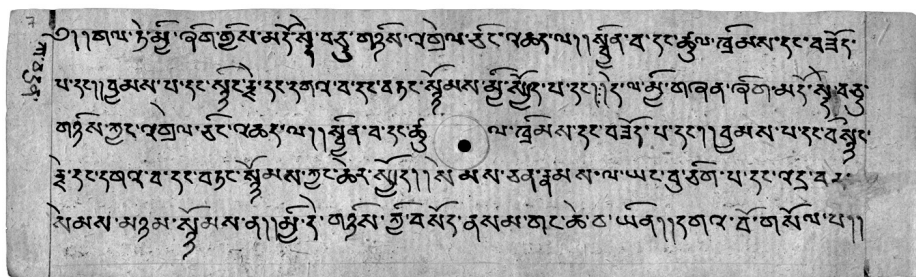 ༡། །གལ་ཏེ་མྱི་ཞིག་གྱིས་མདོ་སྡེ་བཅུ་གཉིས་འགྲེལ་ཅིང་འཆད་ལ། །སྦྱིན་བ་དང་ཚུལ་ཁྲིམས་དང་བཟོད་
པ་དང། །བྱམས་པ་དང་སྙིང་རྗེ་དང་དགའ་བ་དང་བཏང་སྙོམས་མྱི་སྤྱོད་པ་དང། །དེ་ལ་མྱི་གཞན་ཞིག་མདོ་སྡེ་བཅུ་
གཉིས་ཀྱང་འགྲེལ་ཅིང་འཆད་ལ། །སྦྱིན་བ་དང་ཚུལ་ཁྲིམས་དང་བཟོད་པ་དང། །བྱམས་པ་དང་སྙིང་
རྗེ་དང་དགའ་བ་དང་བཏང་སྙོམས་ཀྱང་ཆེར་སྤྱོད། །སེམས་ཅན་རྣམས་ལ་ཡང་བུ་ཅིག་པ་དང་འདྲ་བར་
སེམས་མཉམ་སྙོམས་ན། །མྱི་དེ་གཉིས་ཀྱི་བསོད་ནསམ་གང་ཆེ་བ་ཡིན། །དགའ་བོ་གསོལ་པ། །